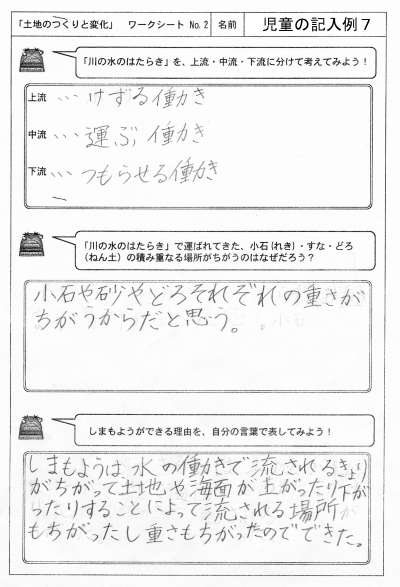 「土地のつくりと変化」 ワークシート No.2 名前 児童の記入例7
「川の水のはたらき」を、上流・中流・下流に分けて考えてみよう！
上流 … けずる働き
中流 … 運ぶ働き
下流 … つもらせる働き
「川の水のはたらき」で運ばれてきた、小石(れき)・すな・どろ
(ねん土)の積み重なる場所がちがうのはなぜだろう？
小石や砂やどろそれぞれの重さが
ちがうからだと思う。
しまもようができる理由を、自分の言葉で表してみよう！
しまもようは水の働きで流されるきょり
がちがって土地や海面が上がったり下が
ったりすることによって流される場所が
もちがったし重さもちがったのでできた。